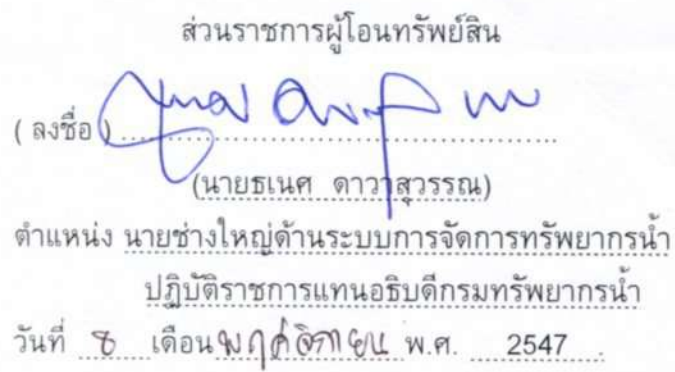 ส่วนราชการผู้โอนทรัพย์สิน
( ลงชื่อ )
(นายธเนศ ดาวาสุวรรณ)
ตำแหน่ง นายช่างใหญ่ด้านระบบการจัดการทรัพยากรน้ำ
ปฏิบัติราชการแทนอธิบดีกรมทรัพยากรน้ำ
วันที่ 8 เดือน พฤศจิกายน พ.ศ. 2547